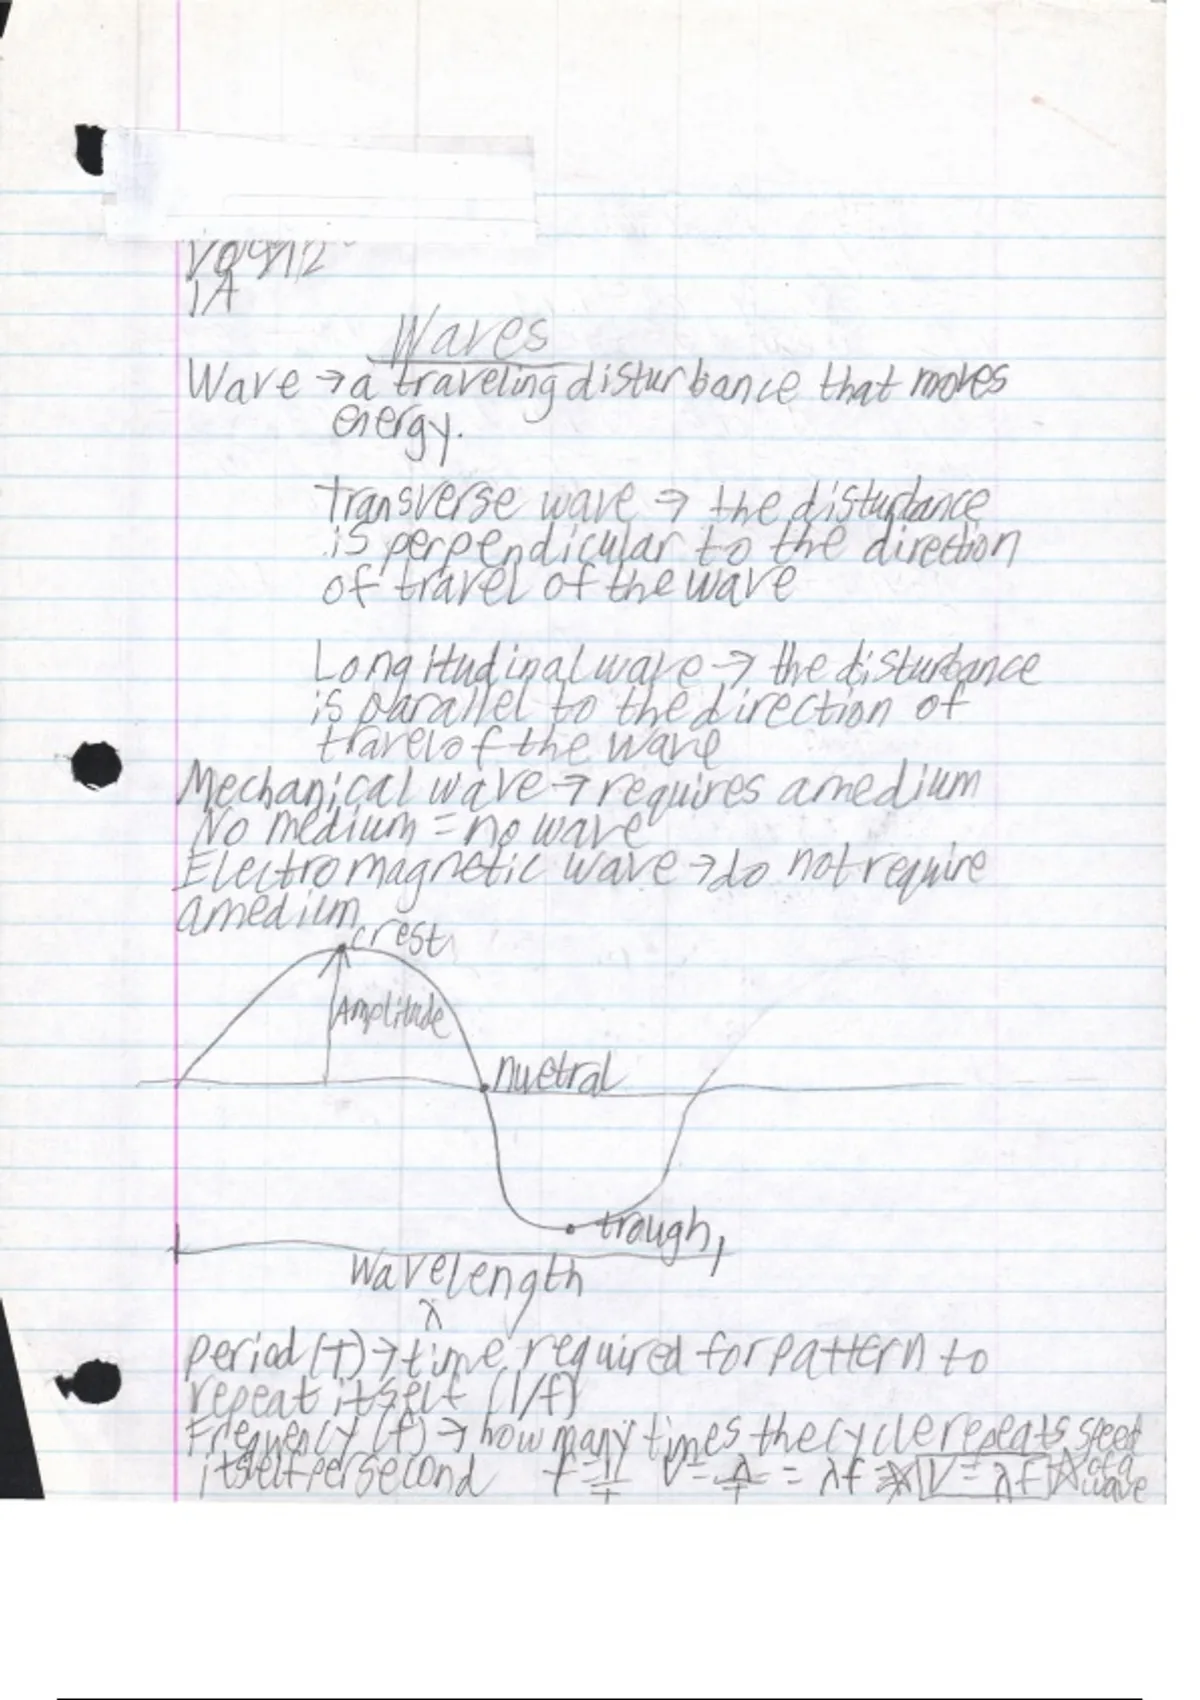 1A
Waves
Wave → a traveling disturbance that moves
energy.
Transverse wave → the disturbance
is perpendicular to the direction
of travel of the wave
Longitudinal wave → the disturbance
is parallel to the direction of
travel of the wave
Mechanical wave → requires a medium
No medium = no wave
Electromagnetic wave → do not require
a medium
crest
Amplitude
nuetral
trough
Wavelength
λ
period (T) → time required for pattern to
repeat itself (1/f)
Frequency (f) → how many times the cycle repeats
itself per second f = 1/T V = λ/T = λf ☆ V = λf ☆ speed of a wave